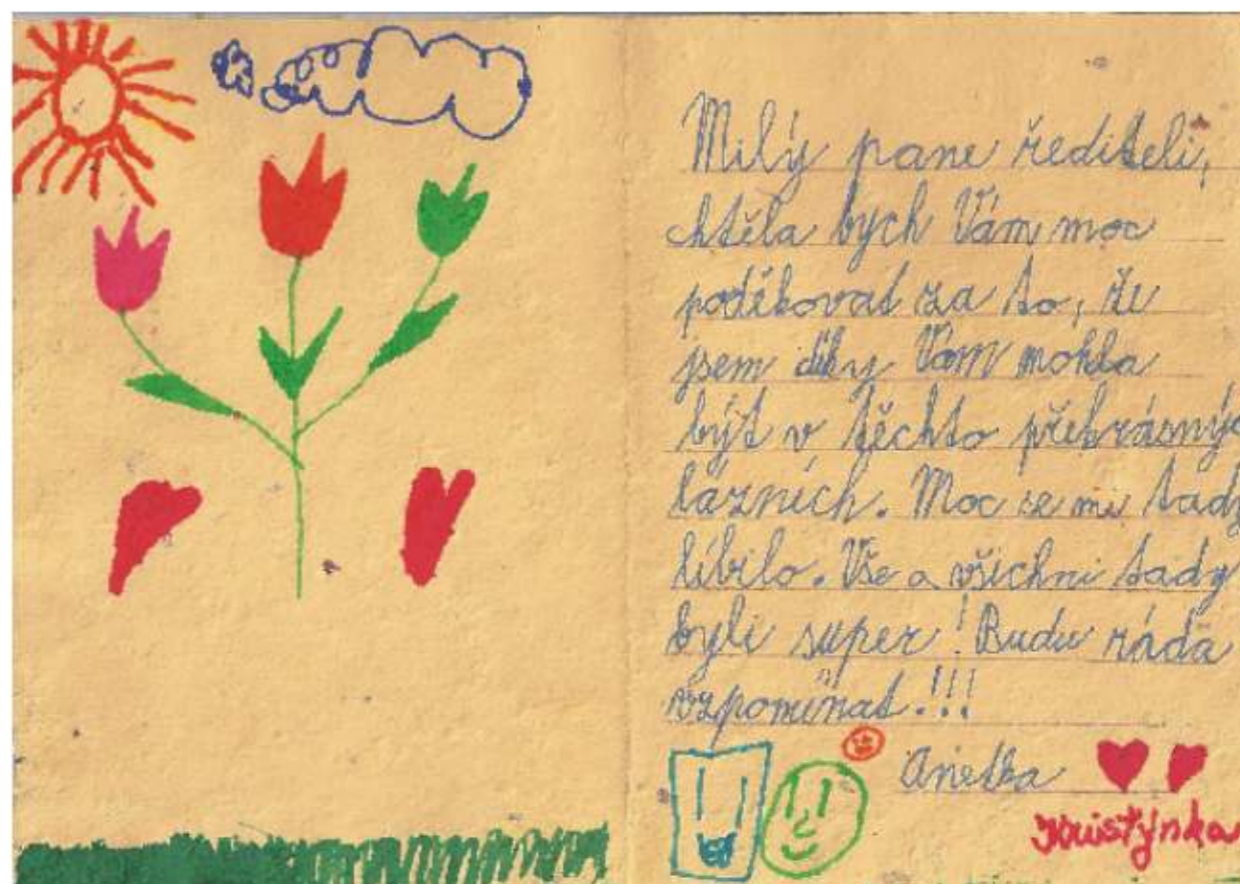 Milý pane řediteli,
chtěla bych Vám moc
poděkovat za to, že
jsem díky Vám mohla
být v těchto překrásnýc
lázních. Moc se mi tady
líbilo. Vše a všichni tady
byli super! Budu ráda
vzpomínat!!!
Anetka
Kristýnka